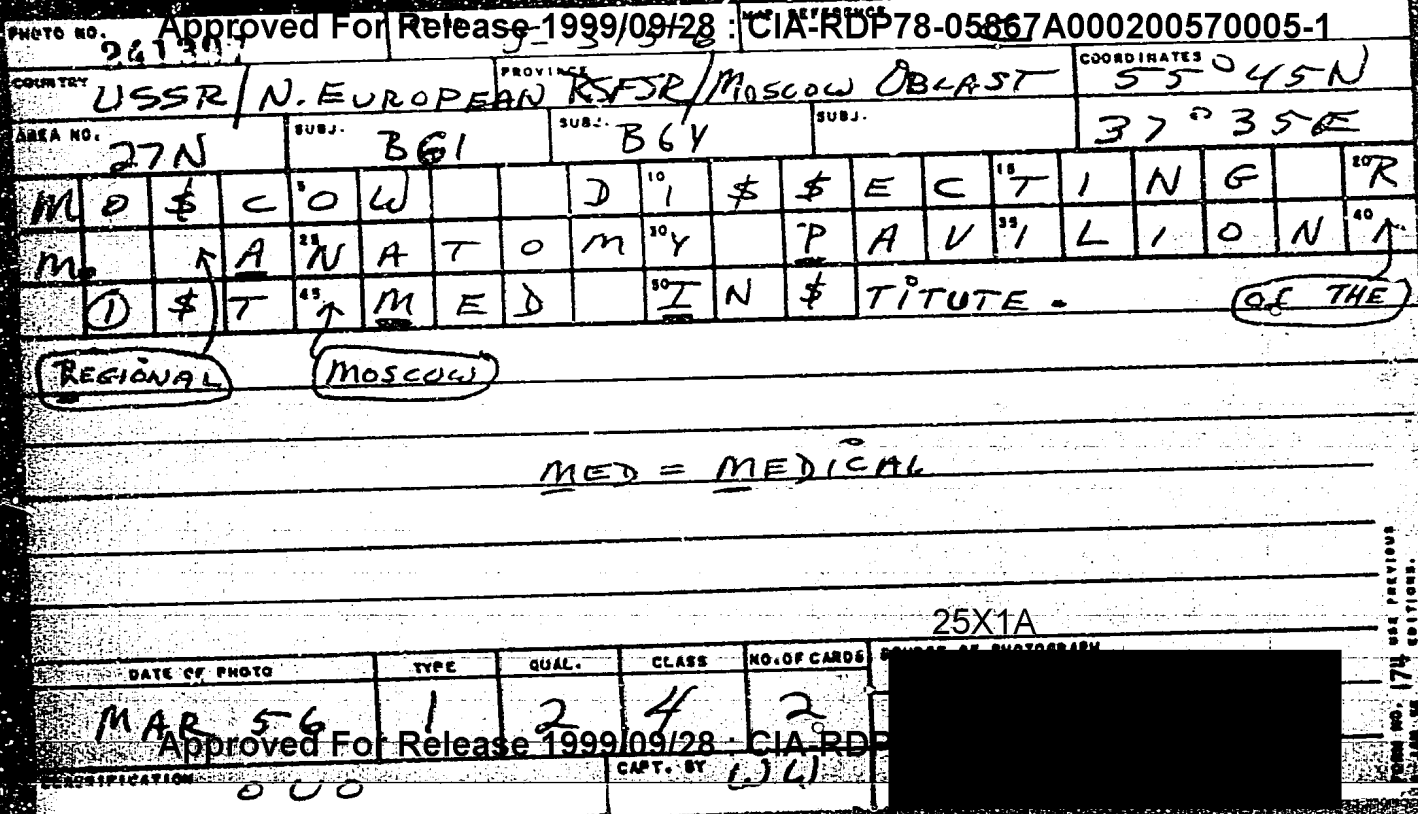 Approved For Release 1999/09/28 : CIA-RDP78-05867A000200570005-1
PHOTO NO.
COUNTRY USSR/N. EUROPEAN PROVINCE RSFSR/MOSCOW OBLAST COORDINATES 55°45N
AREA NO. 27N SUBJ. BG1 SUBJ. B6Y SUBJ. 37°35E
MO$COW DI$$ECTING R
M. ANATOMY PAVILION
① $T MED IN$TITUTE. OF THE
REGIONAL MOSCOW
MED = MEDICAL
25X1A
DATE OF PHOTO TYPE QUAL. CLASS NO. OF CARDS SOURCE OF PHOTOGRAPH
MAR 56 1 2 4 2
Approved For Release 1999/09/28 : CIA-RDP
CLASSIFICATION CAPT. BY
FORM NO. USE PREVIOUS EDITIONS.